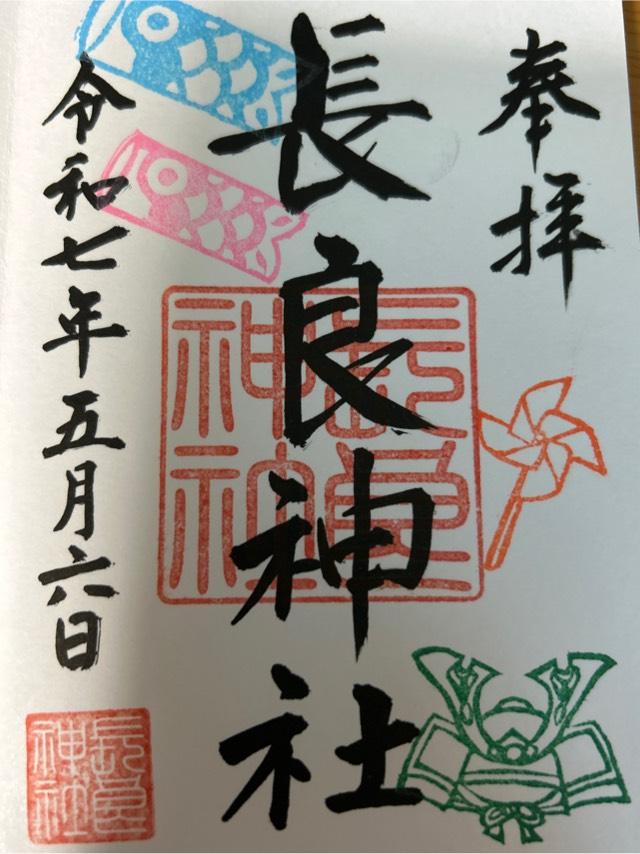 奉拝
長良神社
令和七年五月六日
長良神社
長良神社